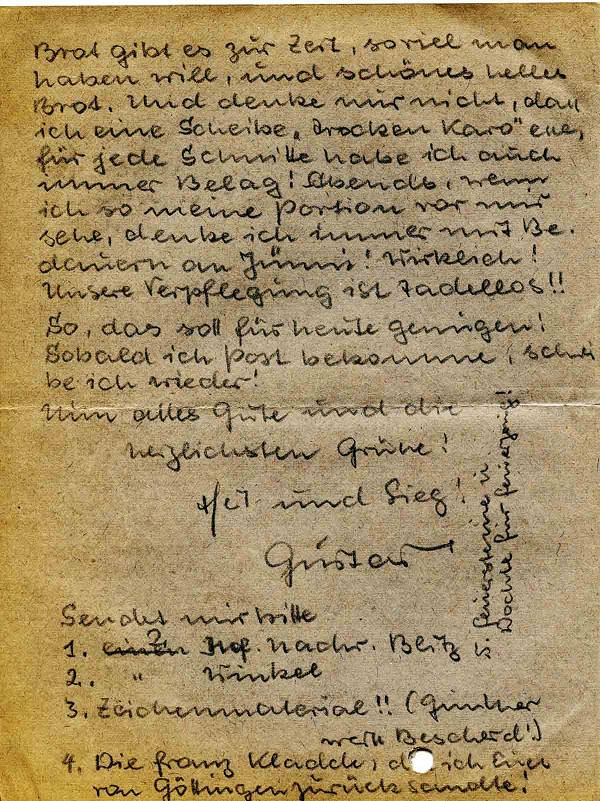 Brot gibt es zur Zeit, soviel man
haben will, und schönes helles
Brot. Und denke nur nicht, daß
ich eine Scheibe „trocken Karo“ esse,
für jede Schnitte habe ich auch
immer Belag! Abends, wenn
ich so meine Portion vor mir
sehe, denke ich immer mit Be-
dauern an! Wirklich!
Unsere Verpflegung ist tadellos!!
So, das soll für heute genügen!
Sobald ich Post bekomme, schrei
be ich wieder!
Nun alles Gute und die
herzlichsten Grüße!
Heil und Sieg!
Gustav
Sendet mir bitte
1. 2 Inf. Nachr. Blitz
2. " Winkel
3. Zeichenmaterial!! (Günther
weiß Bescheid!)
4. Die franz Kladde, die ich Euch
von Göttingen zurücksandte!
5. Feuersteine u.
Dochte für Feuerzeug!